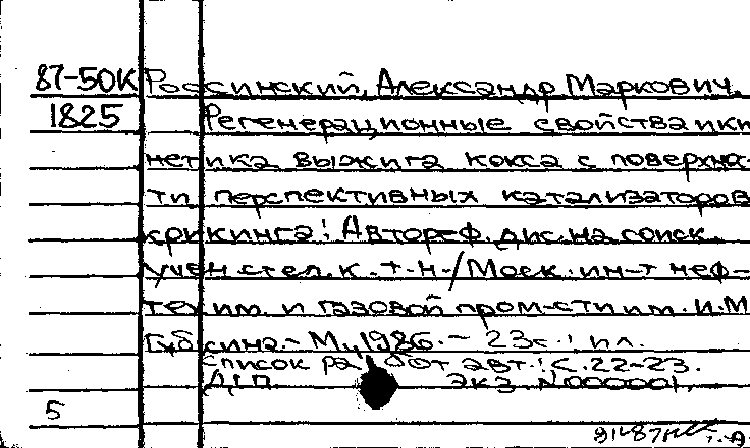 87-50К Россинский, Александр Маркович.
1825 Регенерационные свойства и ки
нетика выжига кокса с поверхнос-
ти перспективных катализаторов
крекинга: Автореф. дис. на соиск.
учен. степ. к. т. н. / Моск. ин-т неф-
техим. и газовой пром-сти им. И.М.
Губкина. - М., 1986. - 23с.: ил.
Список работ авт.: с. 22-23.
ДСП. Экз. N000001.
5